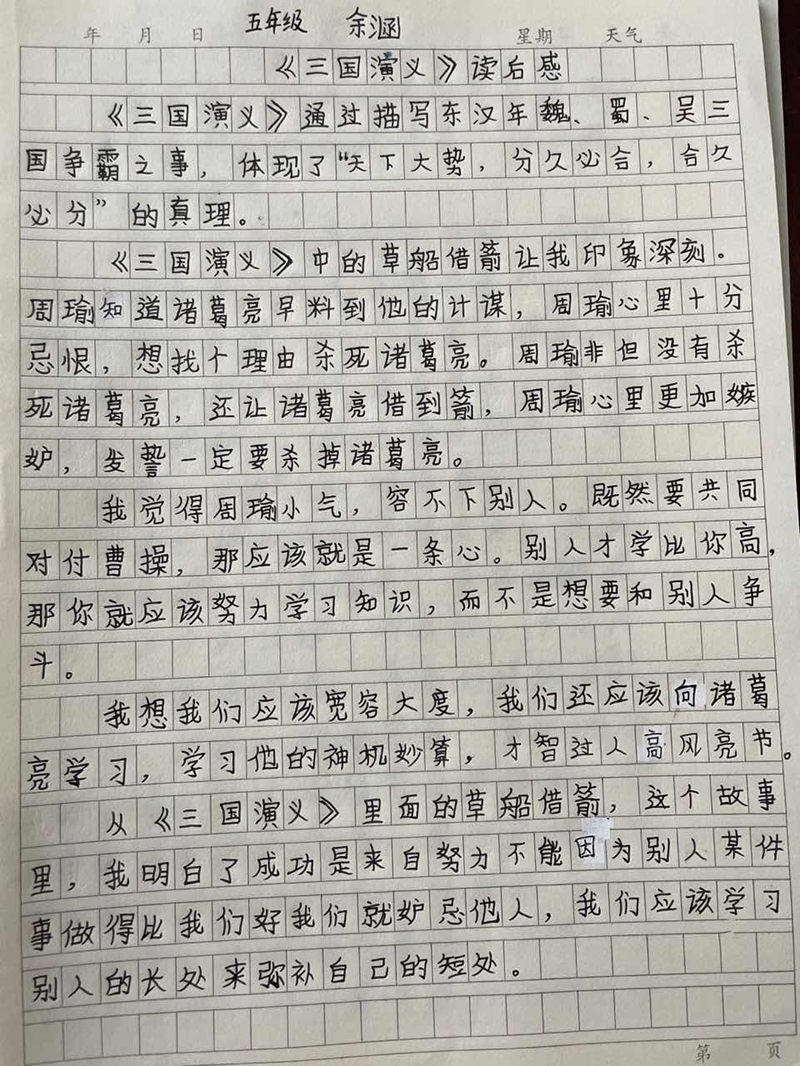 年 月 日 五年级 余涵 星期 天气
《三国演义》读后感
《三国演义》通过描写东汉年魏、蜀、吴三
国争霸之事，体现了“天下大势，分久必合，合久
必分”的真理。
《三国演义》中的草船借箭让我印象深刻。
周瑜知道诸葛亮早料到他的计谋，周瑜心里十分
忌恨，想找个理由杀死诸葛亮。周瑜非但没有杀
死诸葛亮，还让诸葛亮借到箭，周瑜心里更加嫉
妒，发誓一定要杀掉诸葛亮。
我觉得周瑜小气，容不下别人。既然要共同
对付曹操，那应该就是一条心。别人才学比你高，
那你就应该努力学习知识，而不是想要和别人争
斗。
我想我们应该宽容大度，我们还应该向诸葛
亮学习，学习他的神机妙算，才智过人高风亮节。
从《三国演义》里面的草船借箭，这个故事
里，我明白了成功是来自努力不能因为别人某件
事做得比我们好我们就妒忌他人，我们应该学习
别人的长处来弥补自己的短处。
第 页